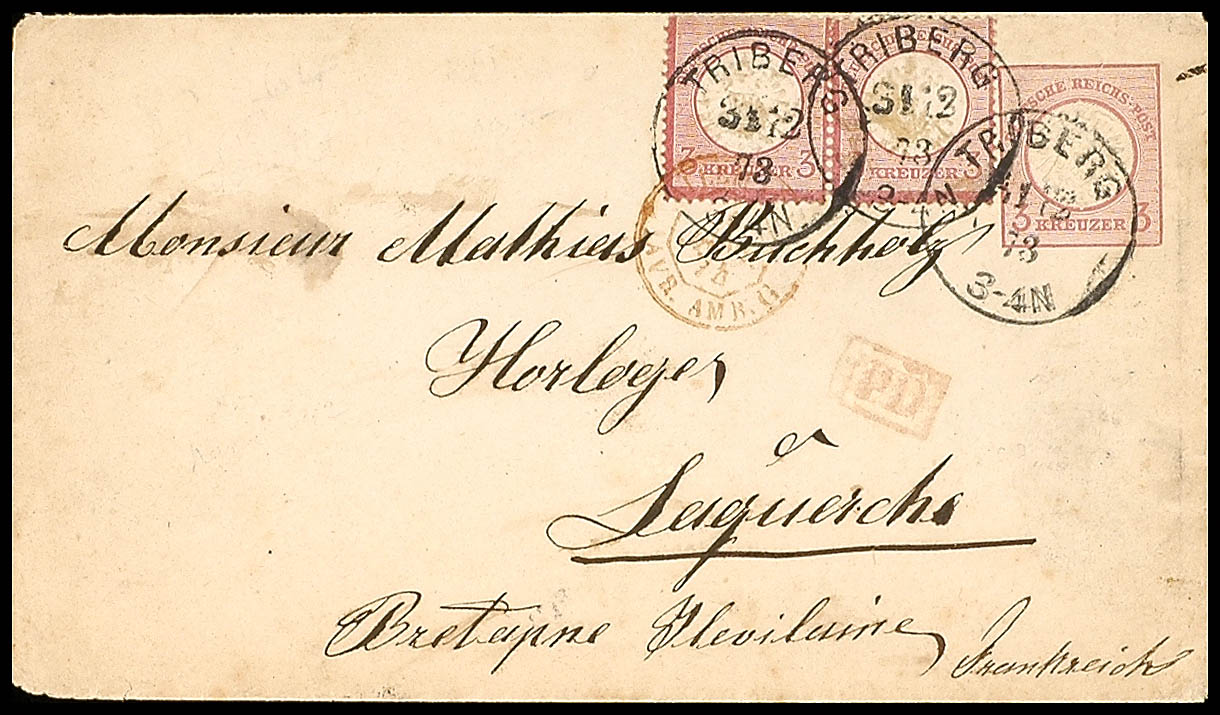 TRIBERG
31 12
73
3-4N
TRIBERG
31 12
73
3-4N
TRIBERG
31 12
73
3-4N
3 KREUZER 3
3 KREUZER 3
REICHS-POST
3 KREUZER 3
AMB. G.
Monsieur Mathias Buchholz,
Horloger
PD
Laguerche
Bretagne Illevilaine,
Frankreich